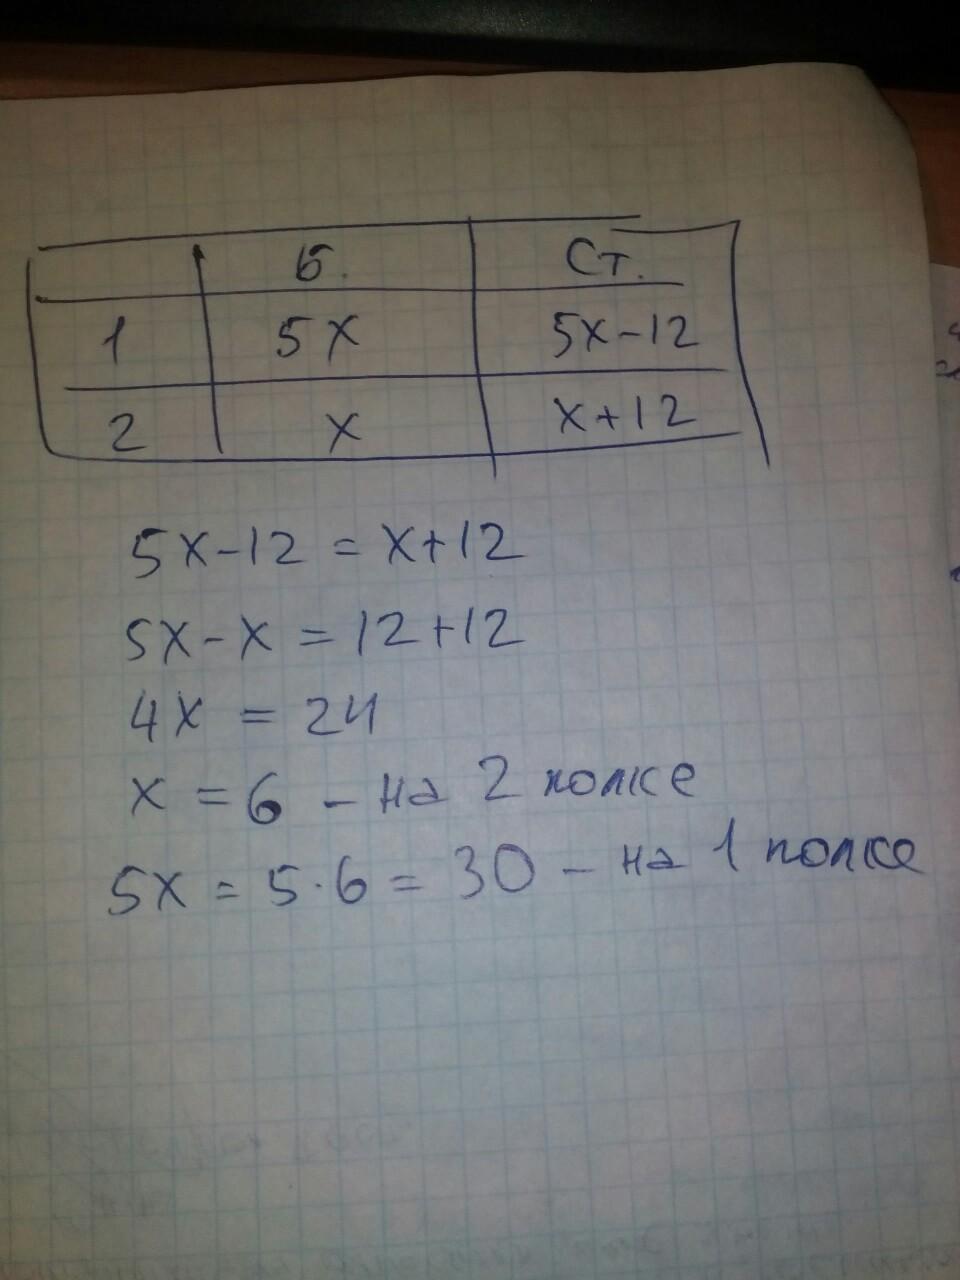 б. Ст.
1 5x 5x-12
2 x x+12
5x-12 = x+12
5x-x = 12+12
4x = 24
x = 6 - на 2 полке
5x = 5·6 = 30 - на 1 полке